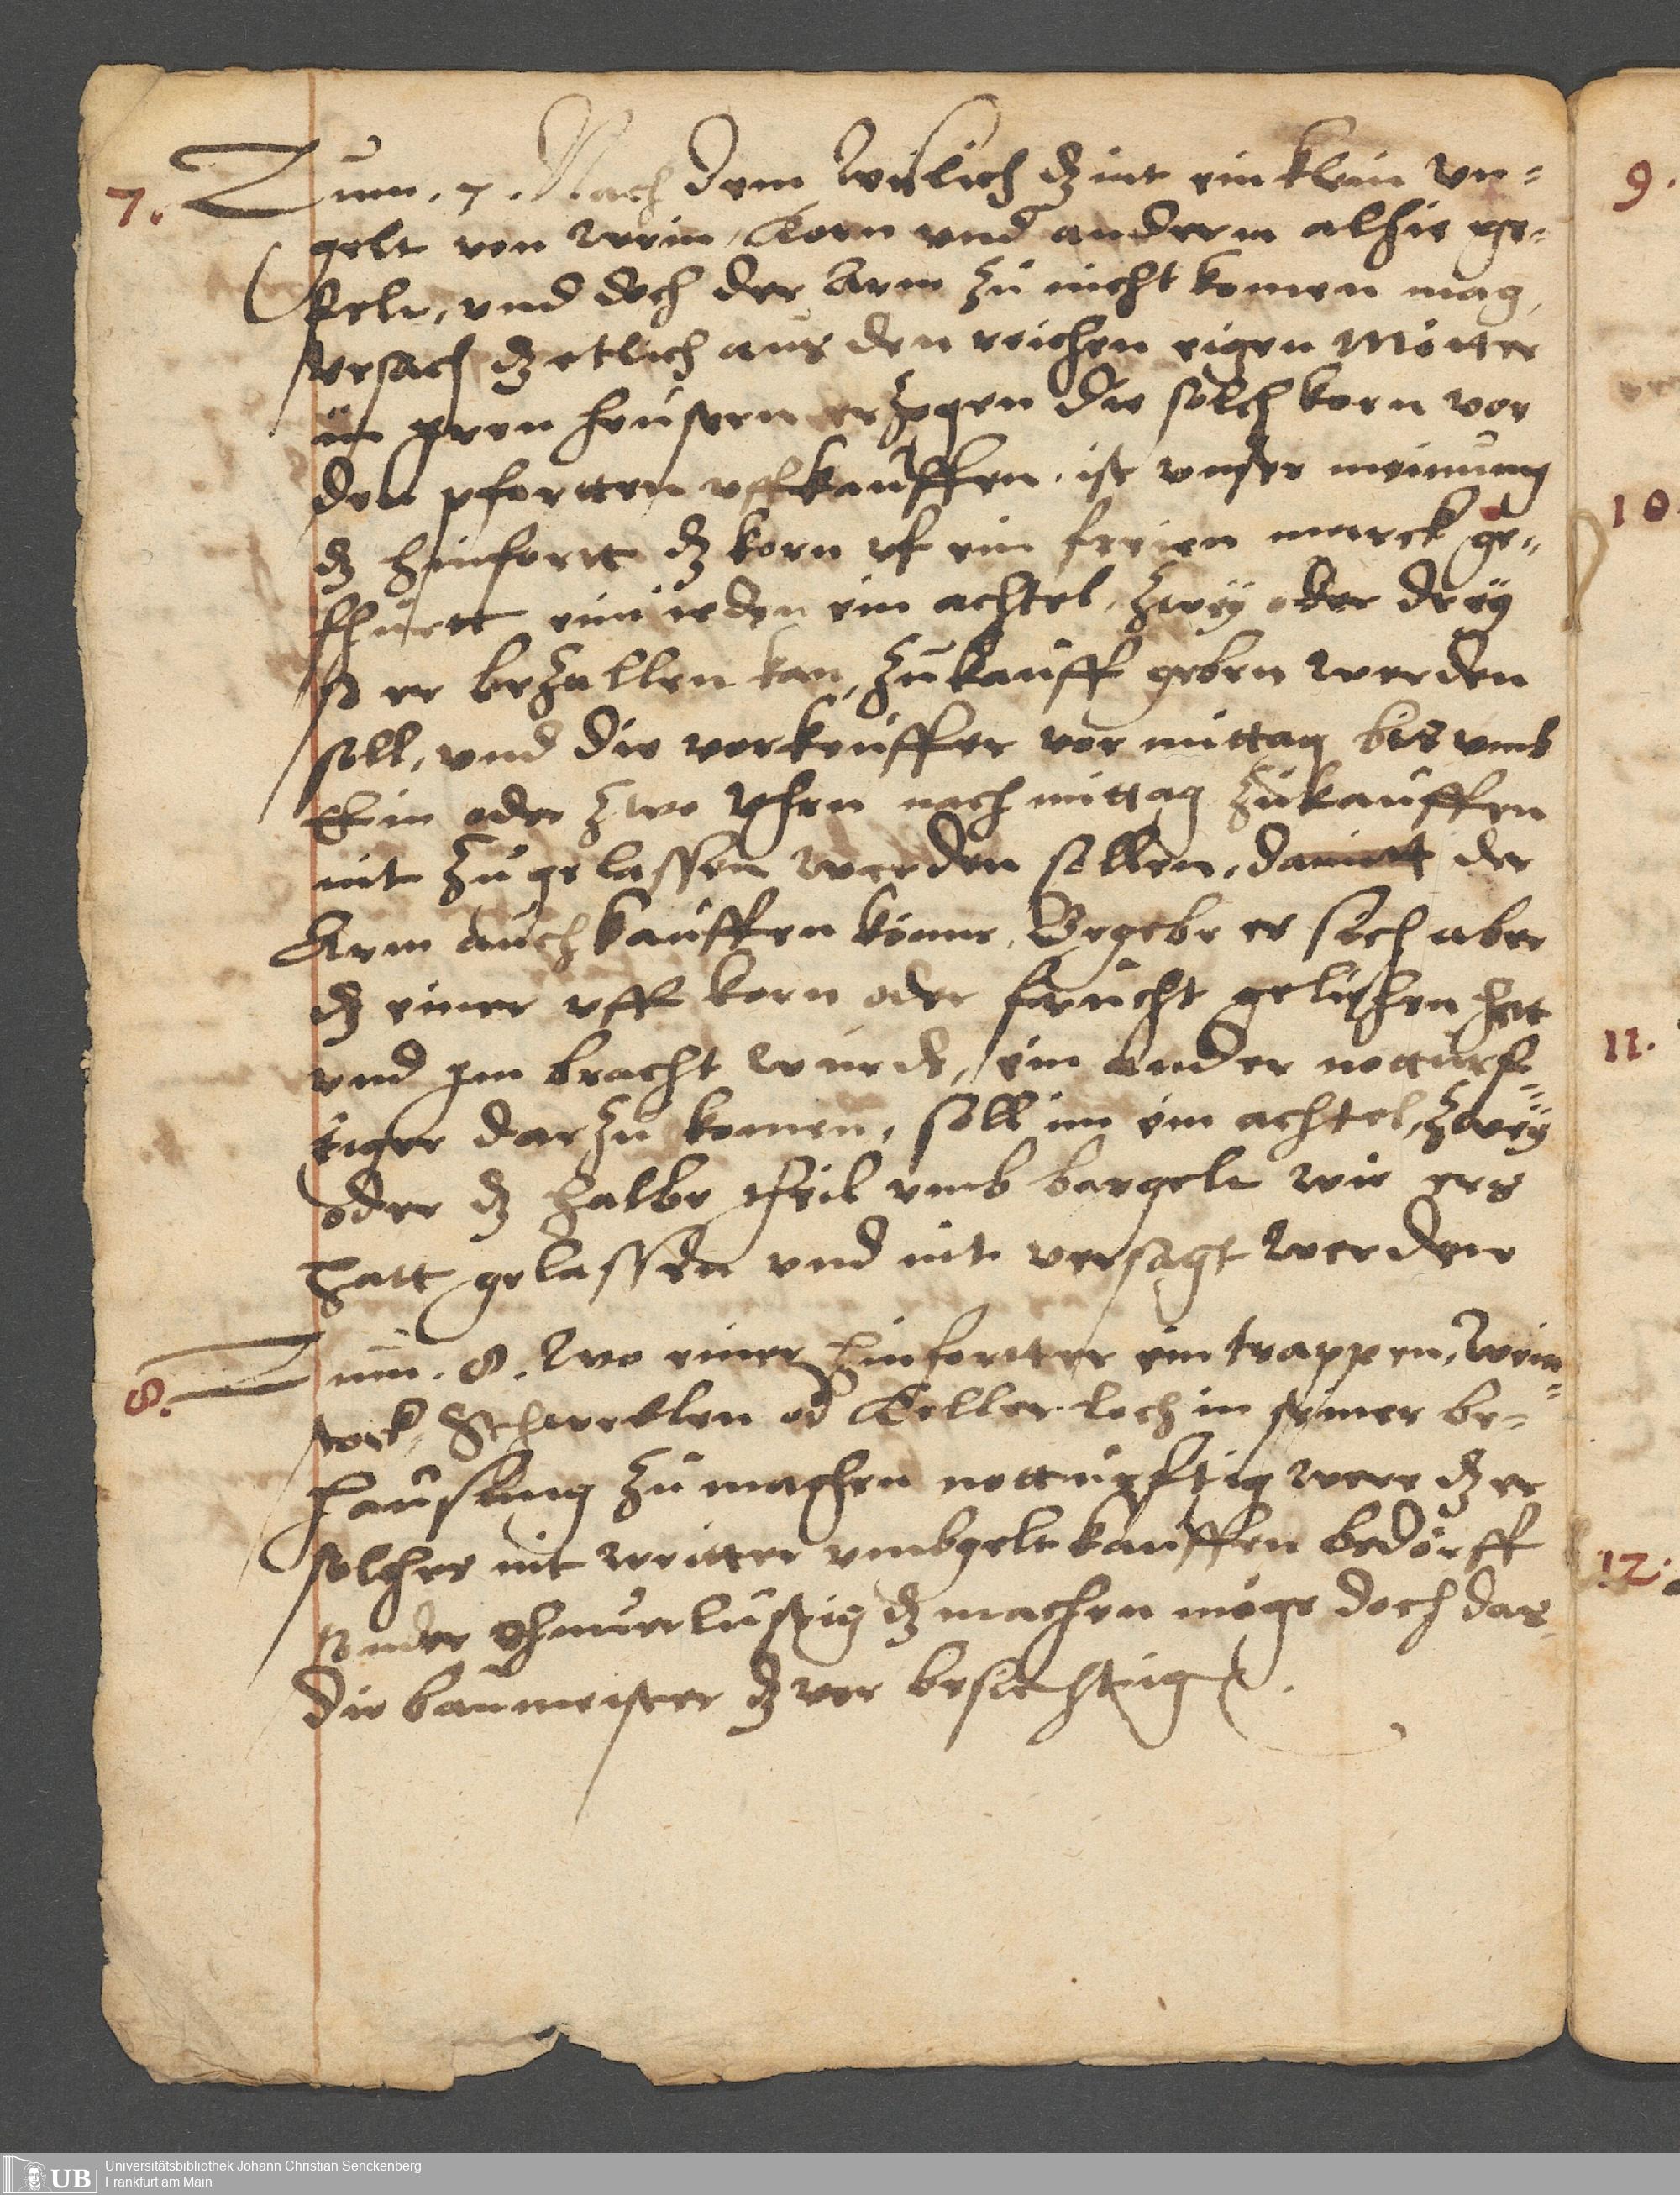 7. Zum .7. Nach dem wislich dz nit ein klein vn-
gelt von wein, Korn vnd anderm alhie ge-
felt, vnd doch der Arm zu nicht komen mag,
vrsach dz etlich aus den reichen eigen Mötter
in jren heusern erzogen die solch korn vor
den pfortten vffkauffen, ist vnser meinung
dz hinfortt dz korn vf ein freien marck ge-
fhurtt eim ieden ein achtel, zwey oder drey
so er bezallen kan, zukauff geben werden
soll, vnd die vorkeuffer vor mittag bis vmb
Ein oder zwo Vhren nach mittag zukauffen
nit zugelassen werden sollen, damitt der
Arm auch kauffen könne, Begebe es sich aber
dz einer vff korn oder frucht gelihen hett
vnd jm bracht wurde, ein ander notturf-
tiger darzu komen, soll im ein achtel, zwey
oder dz halbe theil vmb bargelt wie ers
hatt gelassen vnd nit versagt werden
8. Zum .8. Wo einer hinfortter ein trappen, wein
stock, Schwellen od Keller loch in seiner be-
hausung zu machen notturftig were dz er
solches nit weitter vmbgelt kauffen bedörff
sonder Vhnuerlustig dz machen möge doch das
die baumeister dz vor besichtig
9.
10.
11.
12.
UB Universitätsbibliothek Johann Christian Senckenberg
Frankfurt am Main